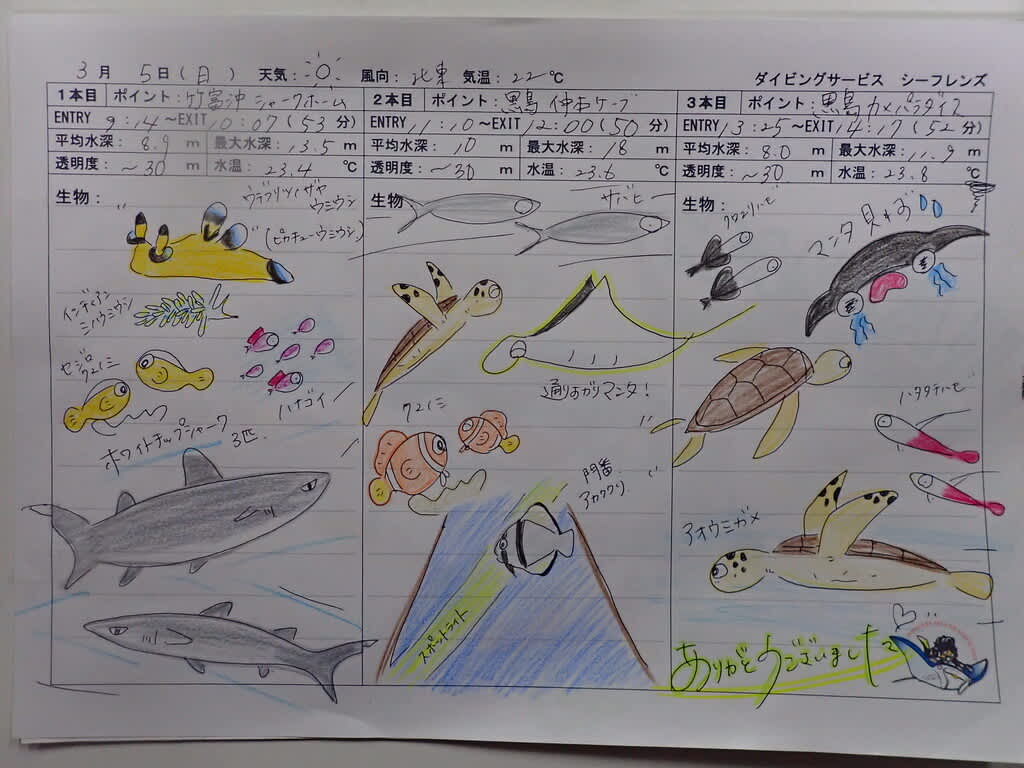 3月 5日(日) 天気: 風向: 北東 気温: 22℃ ダイビングサービス シーフレンズ
1本目 ポイント: 竹富沖 シャークホーム
ENTRY 9:14〜EXIT 10:07(53分)
平均水深: 8.9 m 最大水深: 13.5 m
透明度: 〜30 m 水温: 23.4 ℃
生物:
ウデフリツノザヤ
ウミウシ
(ピカチューウミウシ)
インディアン
ミノウミウシ
セジロ
クマノミ
ハナゴイ
ホワイトチップシャーク
3匹
2本目 ポイント: 黒島 仲本ケーブ
ENTRY 11:10〜EXIT 12:00(50分)
平均水深: 10 m 最大水深: 18 m
透明度: 〜30 m 水温: 23.6 ℃
生物
サバヒー
通りすがりマンタ!
クマノミ
門番
アカククリ
スポットライト
3本目 ポイント: 黒島 カメパラダイス
ENTRY 13:25〜EXIT 14:17(52分)
平均水深: 8.0 m 最大水深: 11.9 m
透明度: 〜30 m 水温: 23.8 ℃
生物:
クロユリハゼ
マンタ見れず
ハタタテハゼ
アオウミガメ
ありがとうございました